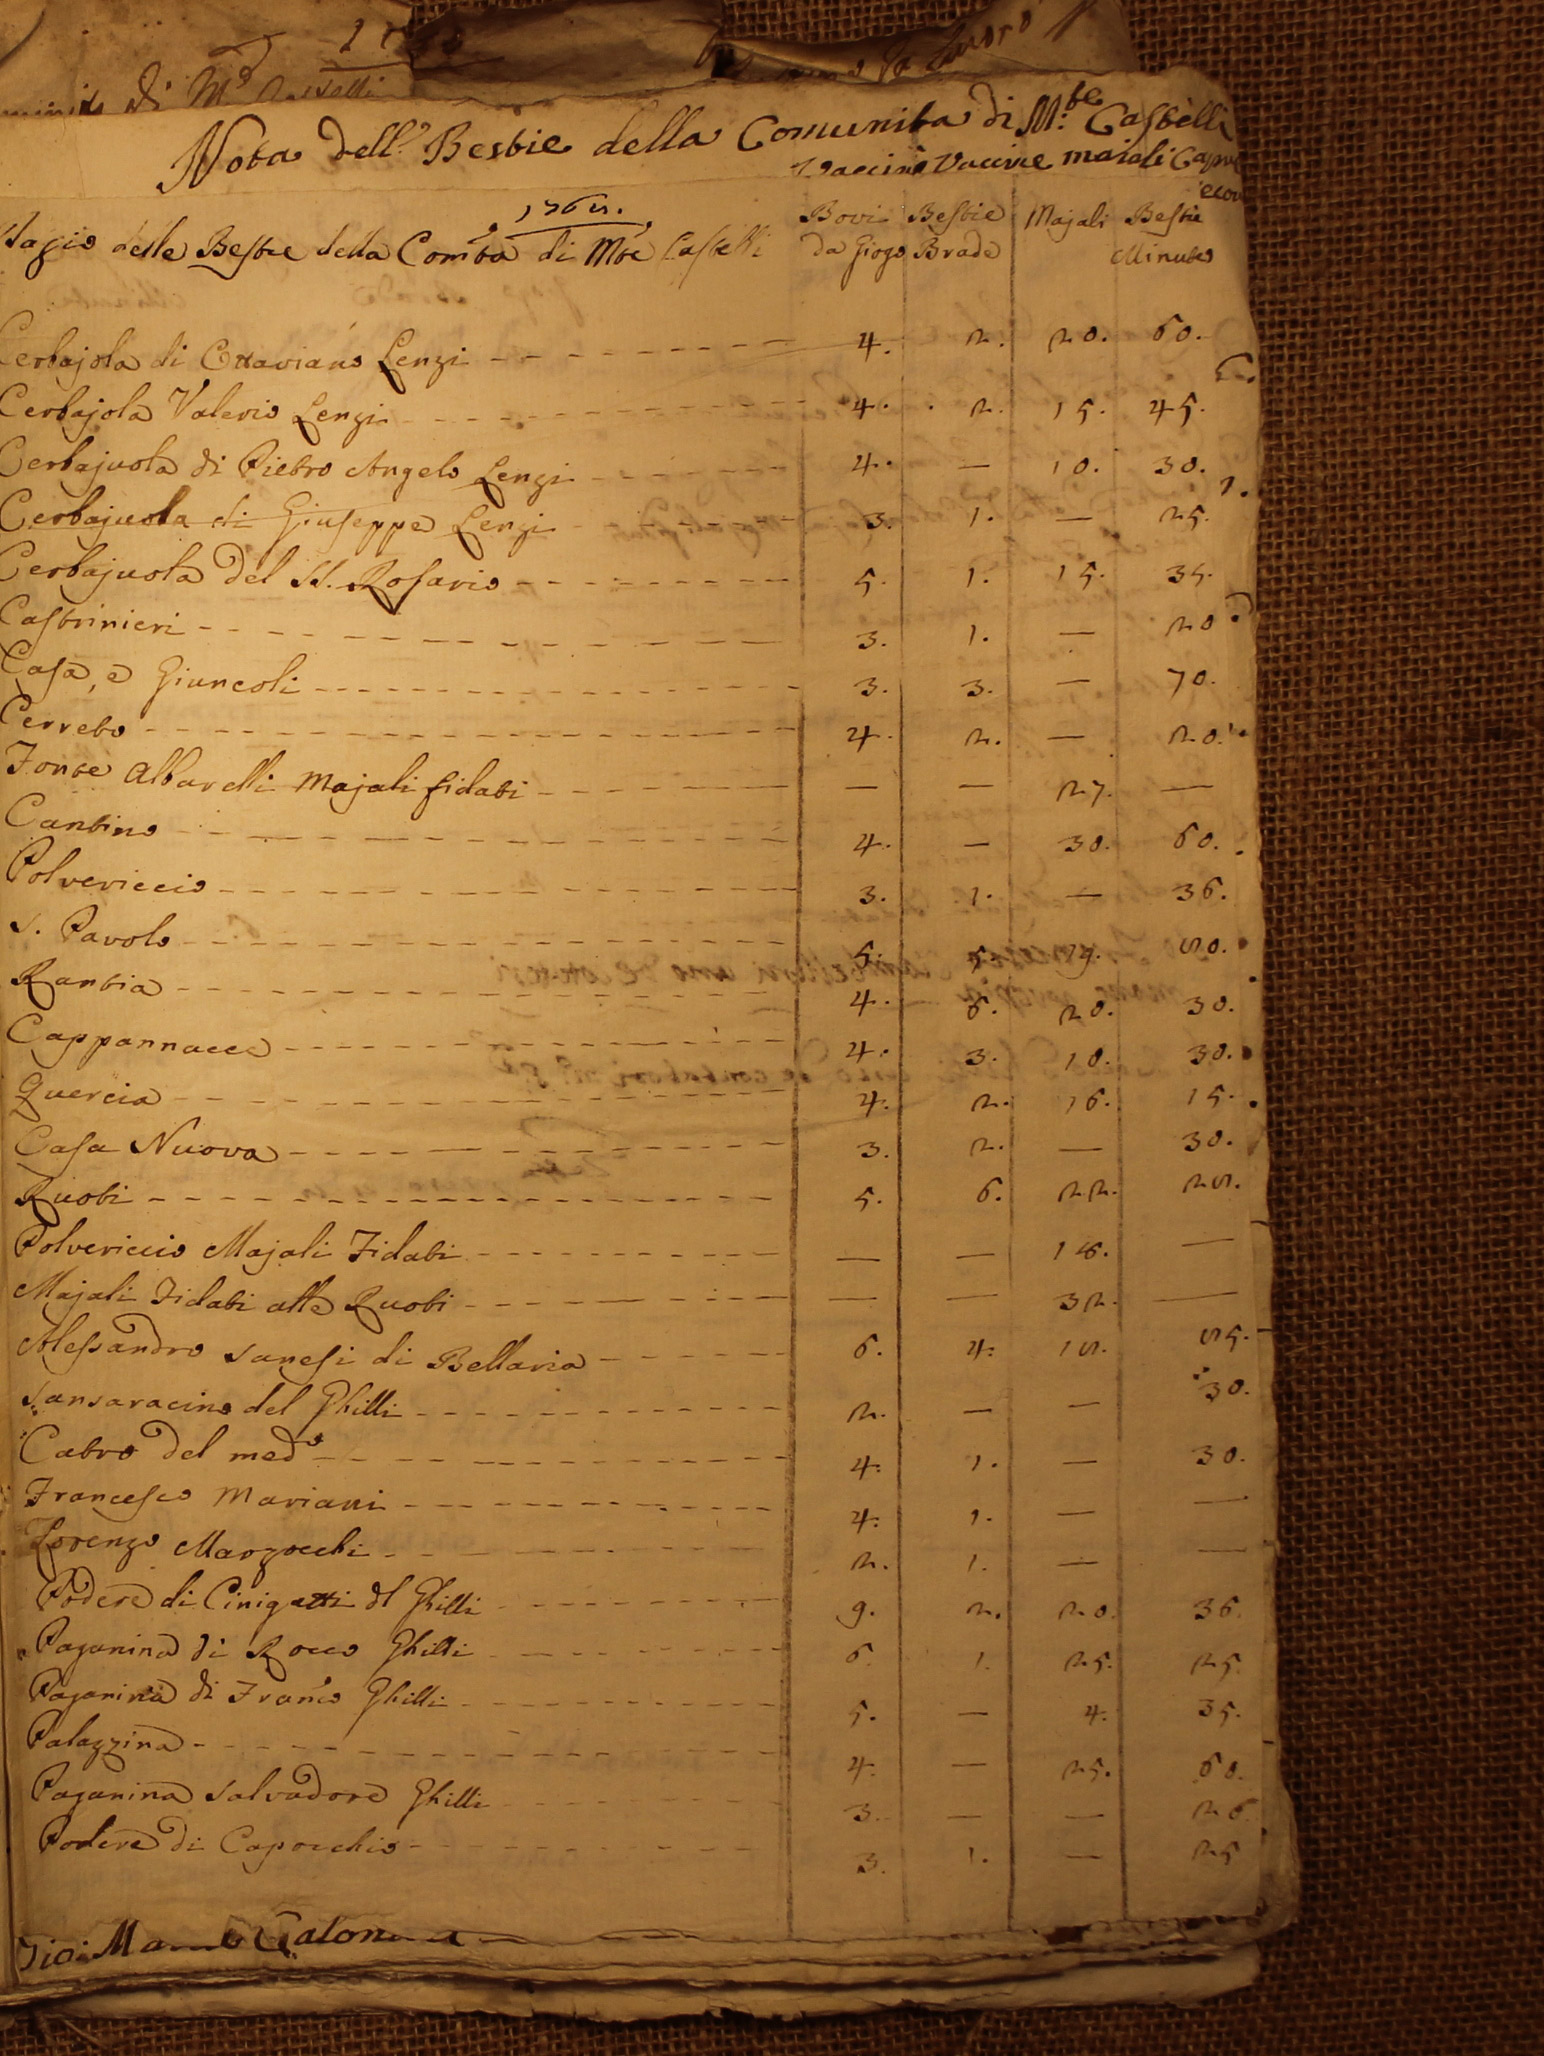 di M.
Nota dell.e Bestie della Comunita di M.te Castelli
Vaccine maiali
1765.
delle Bestie della Com.ta di M.te Castelli Bovi da Giogo Bestie Brade Majali Bestie Minute
Cerbajola di Ottaviano Lenzi 4. 2. 20. 60.
Cerbajola Valerio Lenzi 4. 2. 15. 45.
Cerbajuola di Pietro Angelo Lenzi 4. — 10. 30.
Cerbajuola di Giuseppe Lenzi 3. 1. — 25.
Cerbajuola del SS. Rosario 5. 1. 15. 35.
Castrinieri 3. 1. — 20
Casa, e Giuncoli 3. 3. — 70.
Cerreto 4. 2. — 20.
Fonte Albarelli Majali fidati — — 27. —
Cantino 4. — 30. 60.
Polvericcio 3. 1. — 36.
S. Pavolo 5. 50.
Rantia 4. 6. 20. 30.
Cappannacce 4. 3. 10. 30.
Quercia 4. 2. 16. 15.
Casa Nuova 3. 2. — 30.
Ruoti 5. 6. 22. 25.
Polvericcio Majali Fidati — — 16. —
Majali Fidati alle Ruoti — — 32. —
Alessandro Sanesi di Bellaria 6. 4. 15. 55.
Sansaracino del Ghilli 2. — — 30.
Catro del med.o 4. 1. — 30.
Francesco Mariani 4. 1. — —
Lorenzo Marzocchi 2. 1. — —
Podere di Cinigatti dl Ghilli 9. 2. 20. 36.
Paganina di Rocco Ghilli 6. 1. 25. 25.
Paganina di Fran.co Ghilli 5. — 4. 35.
Palazzina 4. — 25. 60.
Paganina Salvadore Ghilli 3. — — 26.
Podere di Capocchio 3. 1. — 25